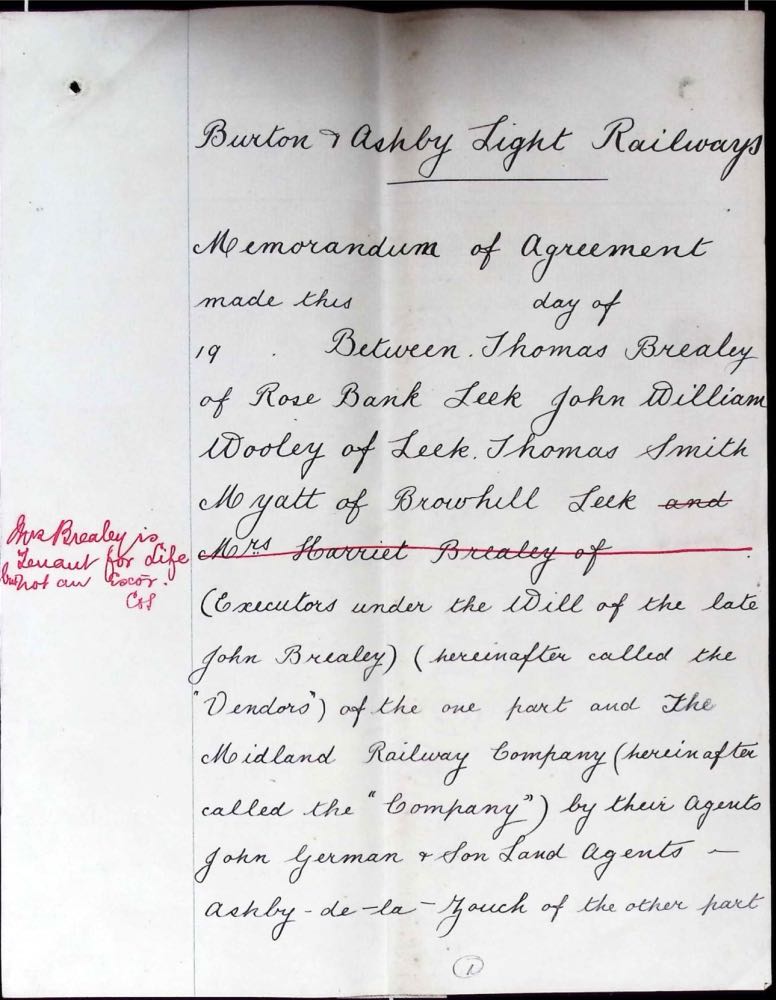 Burton & Ashby Light Railways
Memorandum of Agreement
made this day of
19 . Between. Thomas Brealey
of Rose Bank Leek John William
Wooley of Leek. Thomas Smith
Myatt of Browhill Leek and
Mrs Harriet Brealey of .
(Executors under the Will of the late
John Brealey) (hereinafter called the
"Vendors") of the one part and The
Midland Railway Company (hereinafter
called the "Company") by their Agents
John German & Son Land Agents —
Ashby-de-la-Zouch of the other part
Mrs Brealey is
Tenant for Life
but not an Excor.
1